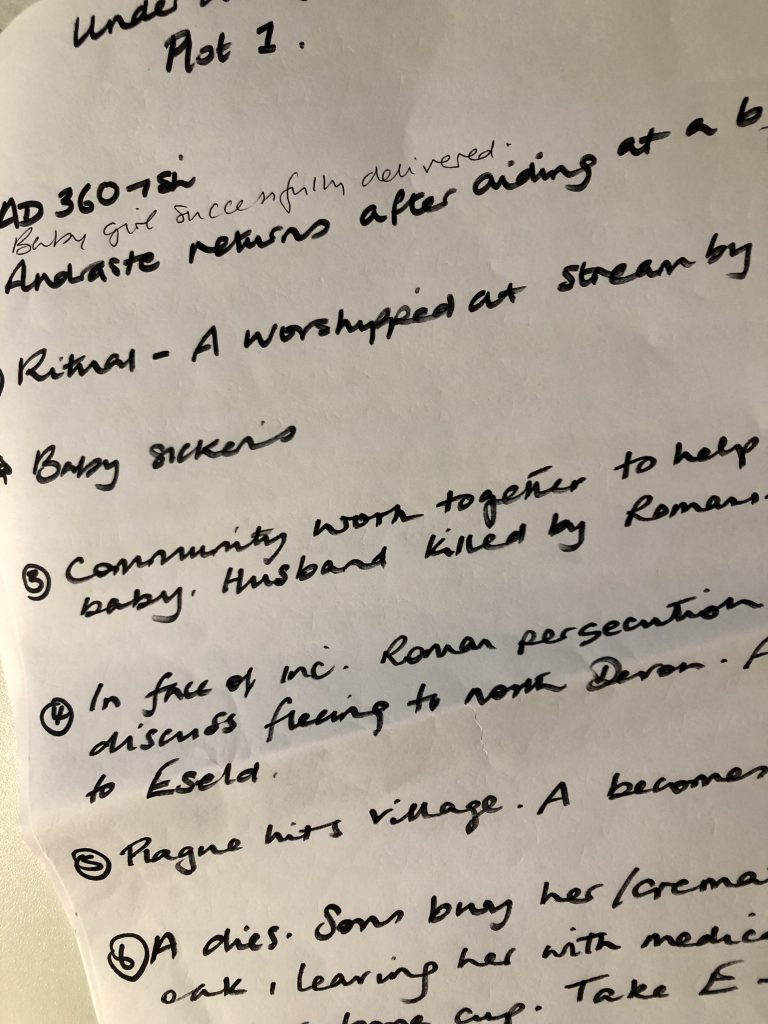 Under
Plot 1.
AD 360
Baby girl successfully delivered.
Andraste returns after aiding at a b
Ritual - A worshipped at stream by
Baby sickens
③ Community work together to help
baby. Husband killed by Romans.
④ In face of inc. Roman persecution
discuss fleeing to north Devon. A
to Eseld.
⑤ Plague hits village. A becomes
⑥ A dies. Sons bury her / crema
oak, leaving her with medic
cup. Take E -